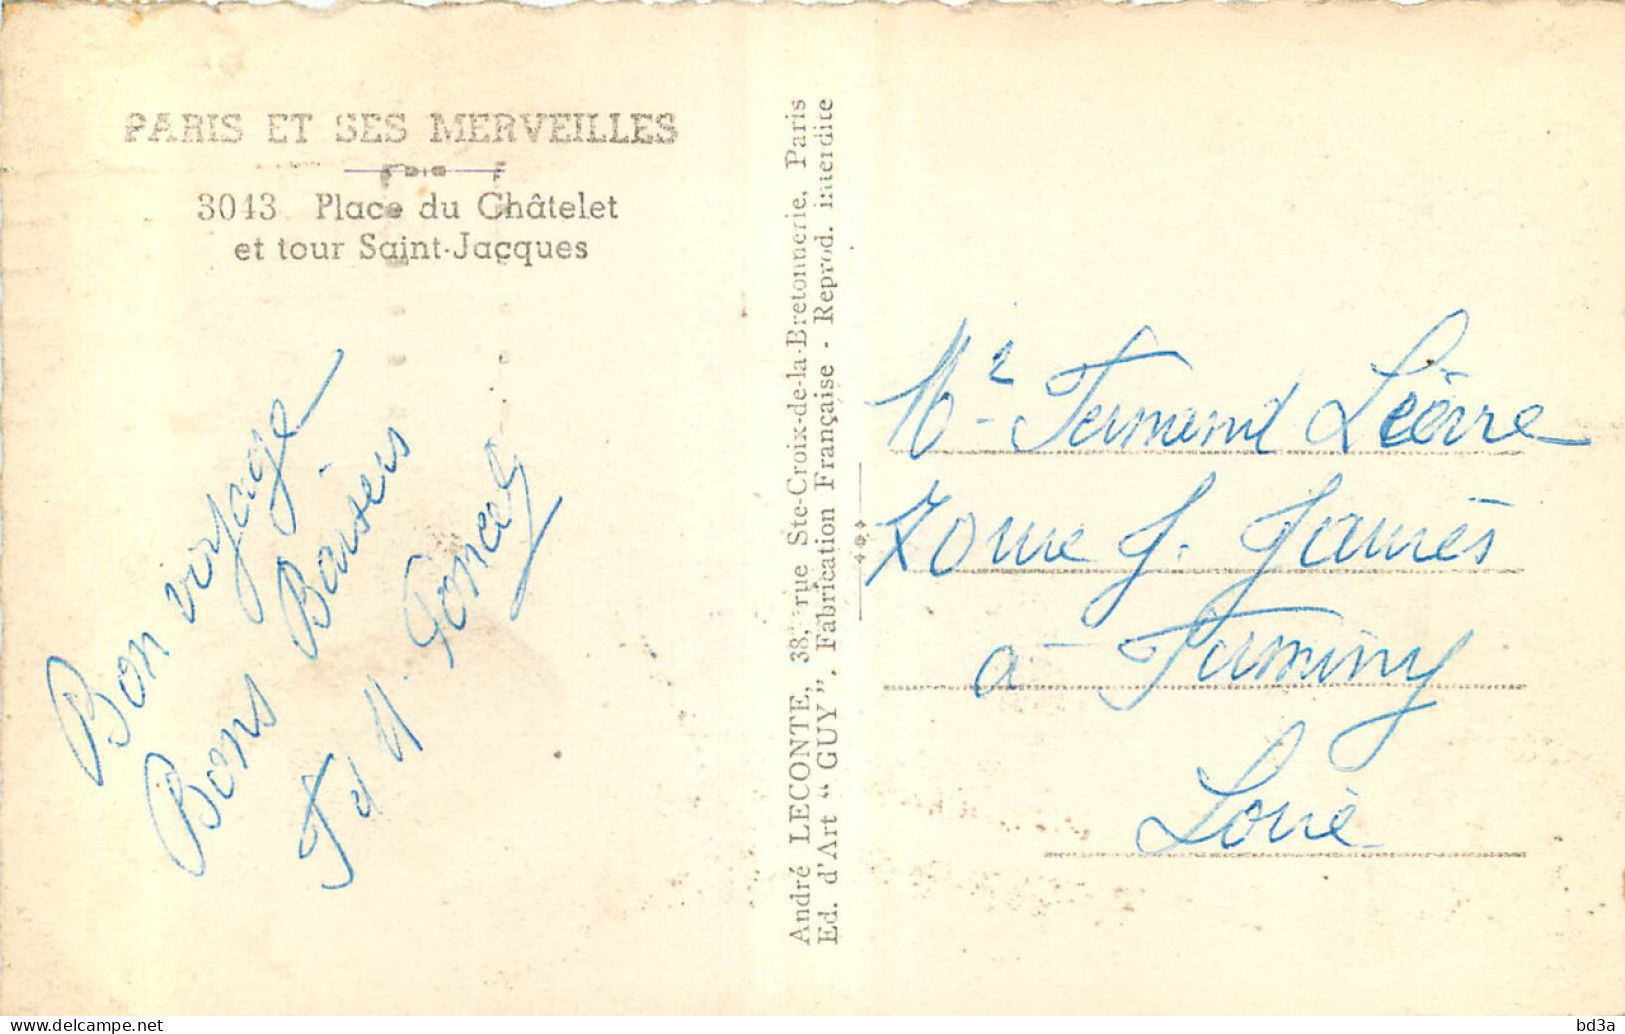 PARIS ET SES MERVEILLES
3043 Place du Châtelet
et tour Saint-Jacques
Bon voyage
Bons Baisers
André LECONTE, 38, rue Ste-Croix-de-la-Bretonnerie, Paris
Ed. d'Art “GUY”. Fabrication Française - Reprod. interdite
Mr Fernand
J. Jaurès
a Firminy
Loire
bd3a